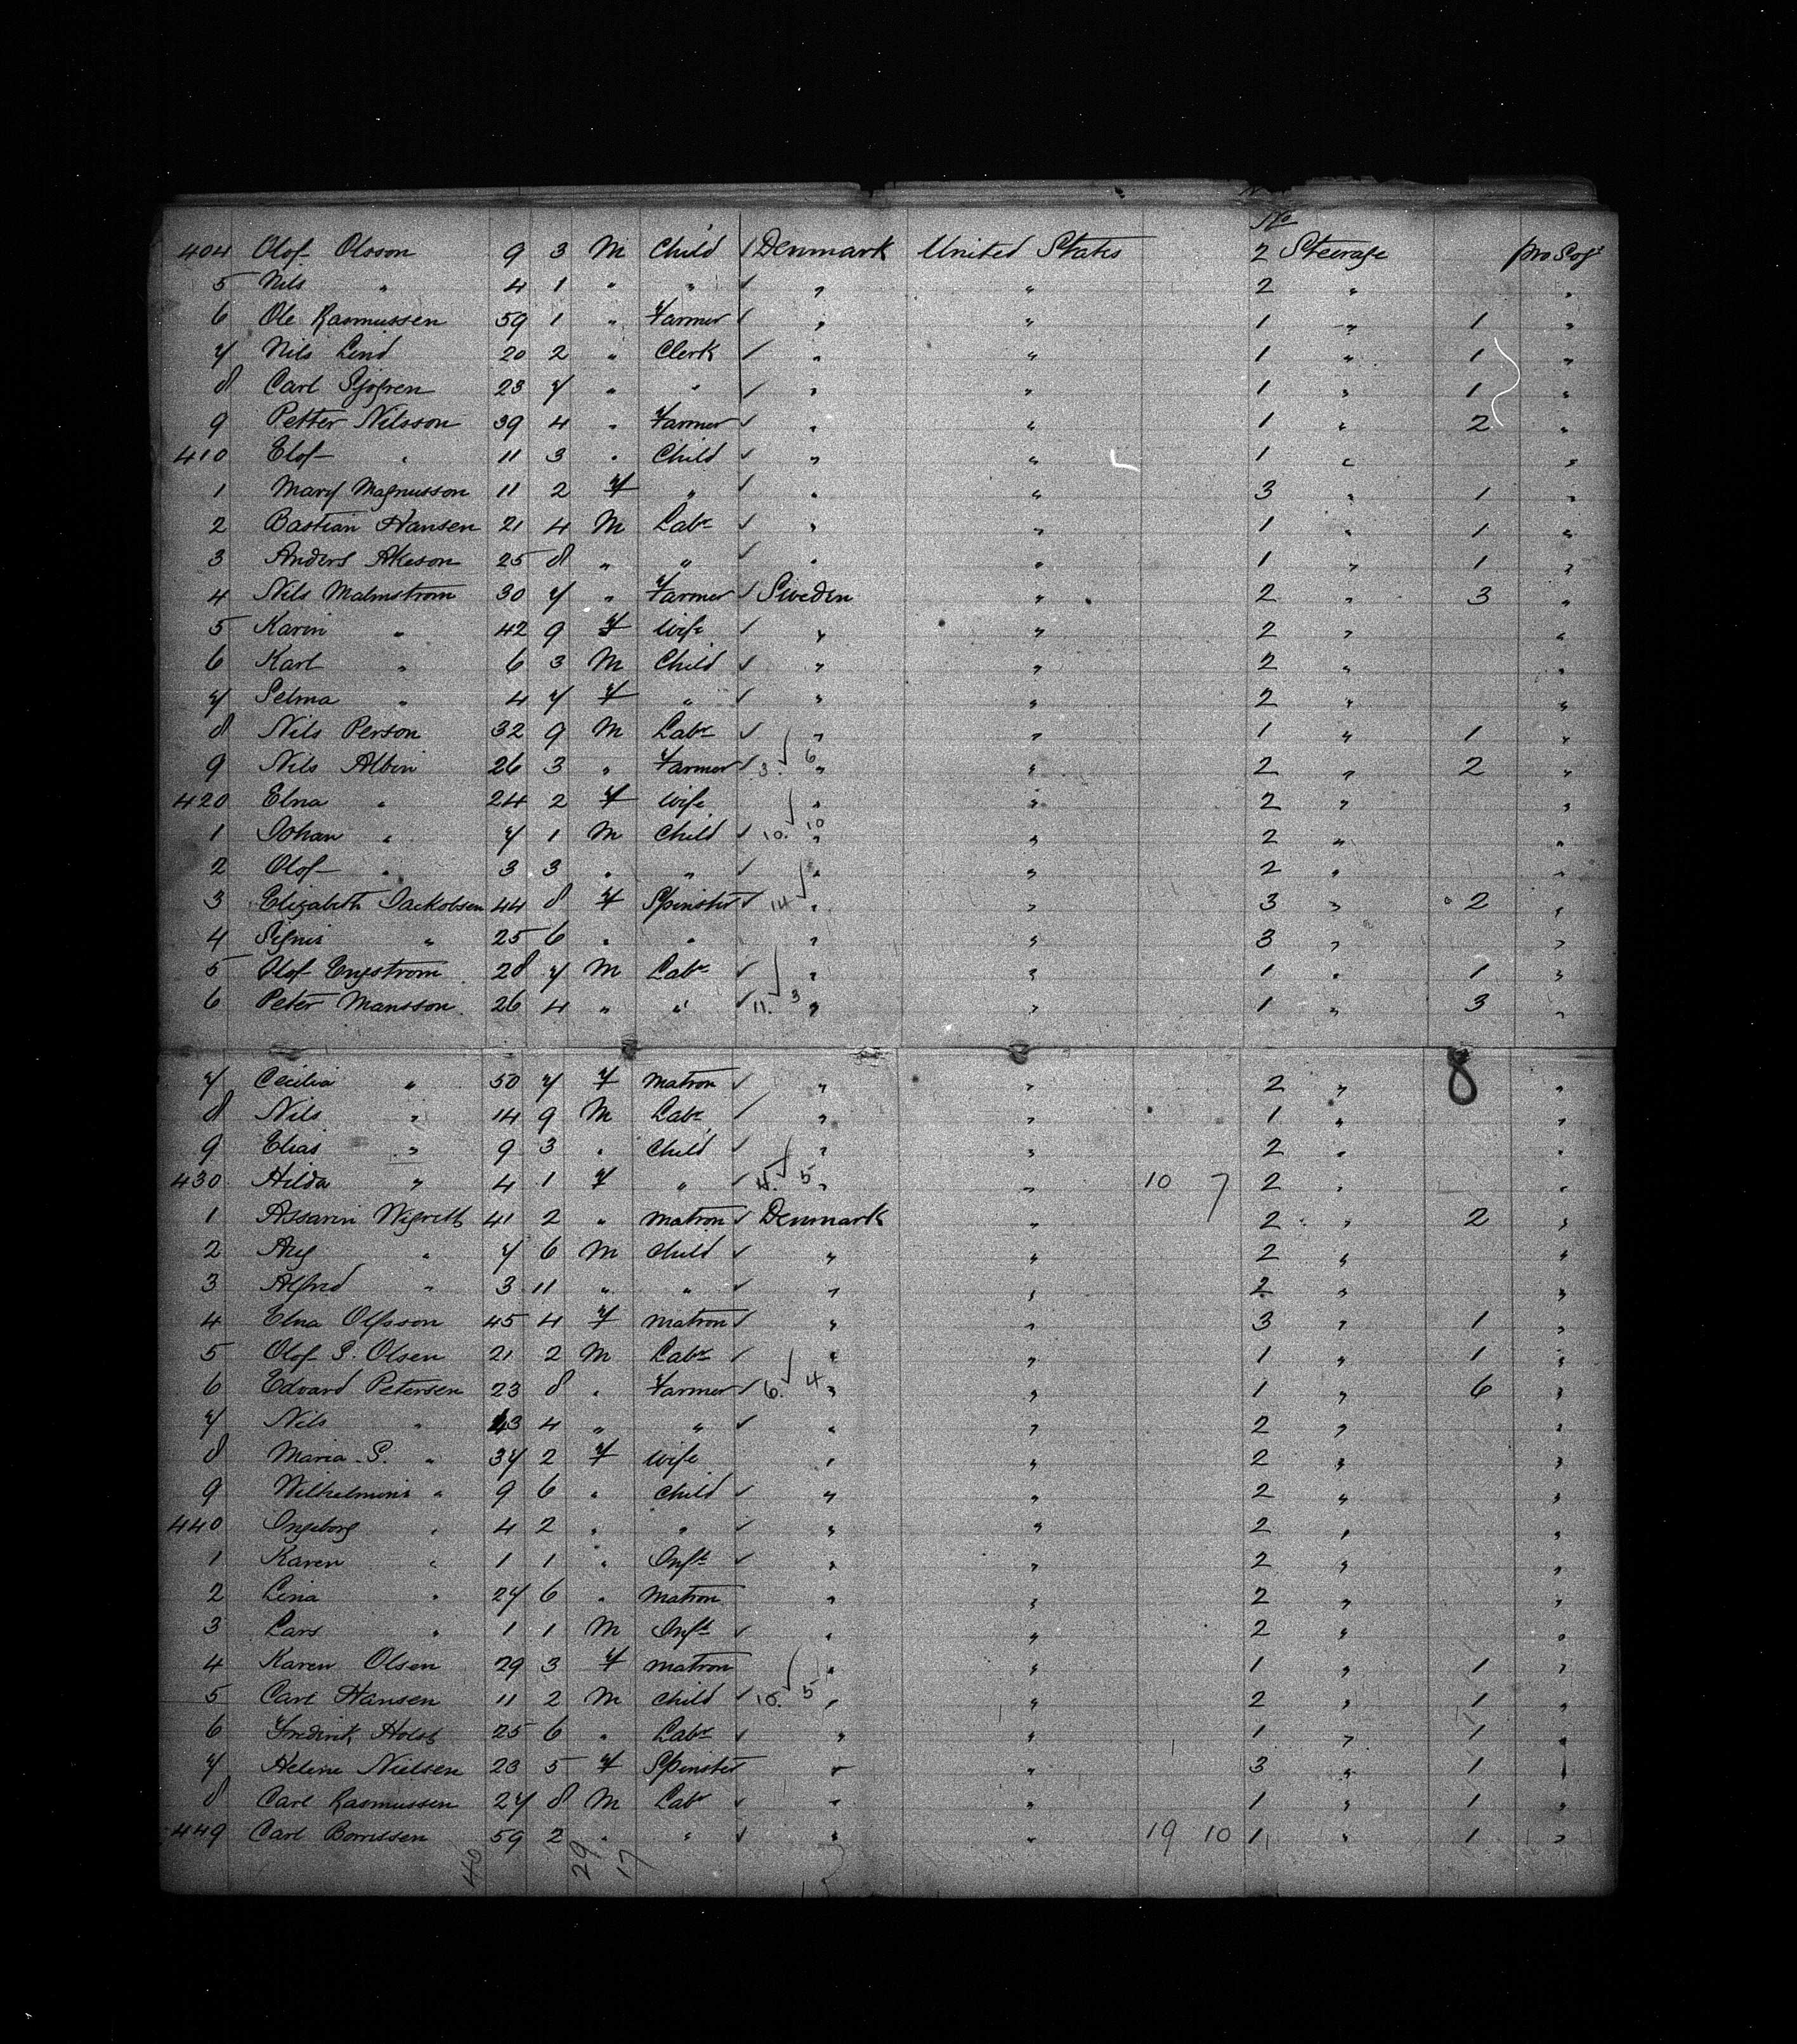 No
404 Olof Olsson 9 3 M Child Denmark United States 2 Steerage
5 Nils " 4 1 " " " " 2 " "
6 Ole Rasmussen 59 1 " Farmer " " 1 " 1 "
7 Nils Lind 20 2 " Clerk " " 1 " 1 "
8 Carl Sjogren 23 7 " " " " 1 " 1 "
9 Petter Nilsson 39 4 " Farmer " " 1 " 2 "
410 Elof " 11 3 " Child " " 1 " "
1 Mary Magnusson 11 2 F " " " 3 " 1 "
2 Bastian Hansen 21 4 M Labr " " 1 " 1 "
3 Anders Akeson 25 8 " " " " 1 " 1 "
4 Nils Malmstrom 30 7 " Farmer Sweden " 2 " 3 "
5 Karin " 42 9 F Wife " " 2 " "
6 Karl " 6 3 M Child " " 2 " "
7 Selma " 4 7 F " " " 2 " "
8 Nils Person 32 9 M Labr " " 1 " 1 "
9 Nils Albin 26 3 " Farmer 3. 6 " " 2 " 2 "
420 Elna " 24 2 F Wife " " 2 " "
1 Johan " 7 1 M Child 10. 10 " " 2 " "
2 Olof " 3 3 " " " " 2 " "
3 Elizabeth Jackobsen 44 8 F Spinster 14 " " 3 " 2 "
4 Signis " 25 6 " " " " 3 " "
5 Olof Engstrom 28 7 M Labr " " 1 " 1 "
6 Peter Mansson 26 4 " " 11. 3 " " 1 " 3 "
7 Cecilia " 50 7 F Matron " " 2 " 8 "
8 Nils " 14 9 M Labr " " 1 " "
9 Elias " 9 3 " Child " " 2 " "
430 Hilda " 4 1 F " 5 " " 10 7 2 " "
1 Assarin 41 2 " Matron Denmark " 2 " 2 "
2 " 7 6 M Child " " 2 " "
3 Alfred " 3 11 " " " " 2 " "
4 Elna Olfsson 45 4 F Matron " " 3 " 1 "
5 Olof S. Olsen 21 2 M Labr " " 1 " 1 "
6 Edvard Petersen 23 8 " Farmer 6. 4 " " 1 " 6 "
7 Nils " 43 4 " " " " 2 " "
8 Maria S. " 37 2 F Wife " " 2 " "
9 Wilhelmina " 9 6 " Child " " 2 " "
440 Ingeborg " 4 2 " " " " 2 " "
1 Karen " 1 1 " Inft " " 2 " "
2 Lina " 27 6 " Matron " " 2 " "
3 Lars " 1 1 M Inft " " 2 " "
4 Karen Olsen 29 3 F Matron " " 1 " 1 "
5 Carl Hansen 11 2 M Child 10. 5 " " 2 " 1 "
6 Fredrik Holst 25 6 " Labr " " 1 " 1 "
7 Heline Nielsen 23 5 F Spinster " " 3 " 1 "
8 Carl Rasmussen 27 8 M Labr " " 1 " 1 "
449 Carl Borressen 59 2 " " " " 19 10 1 " 1 "
40 29 17